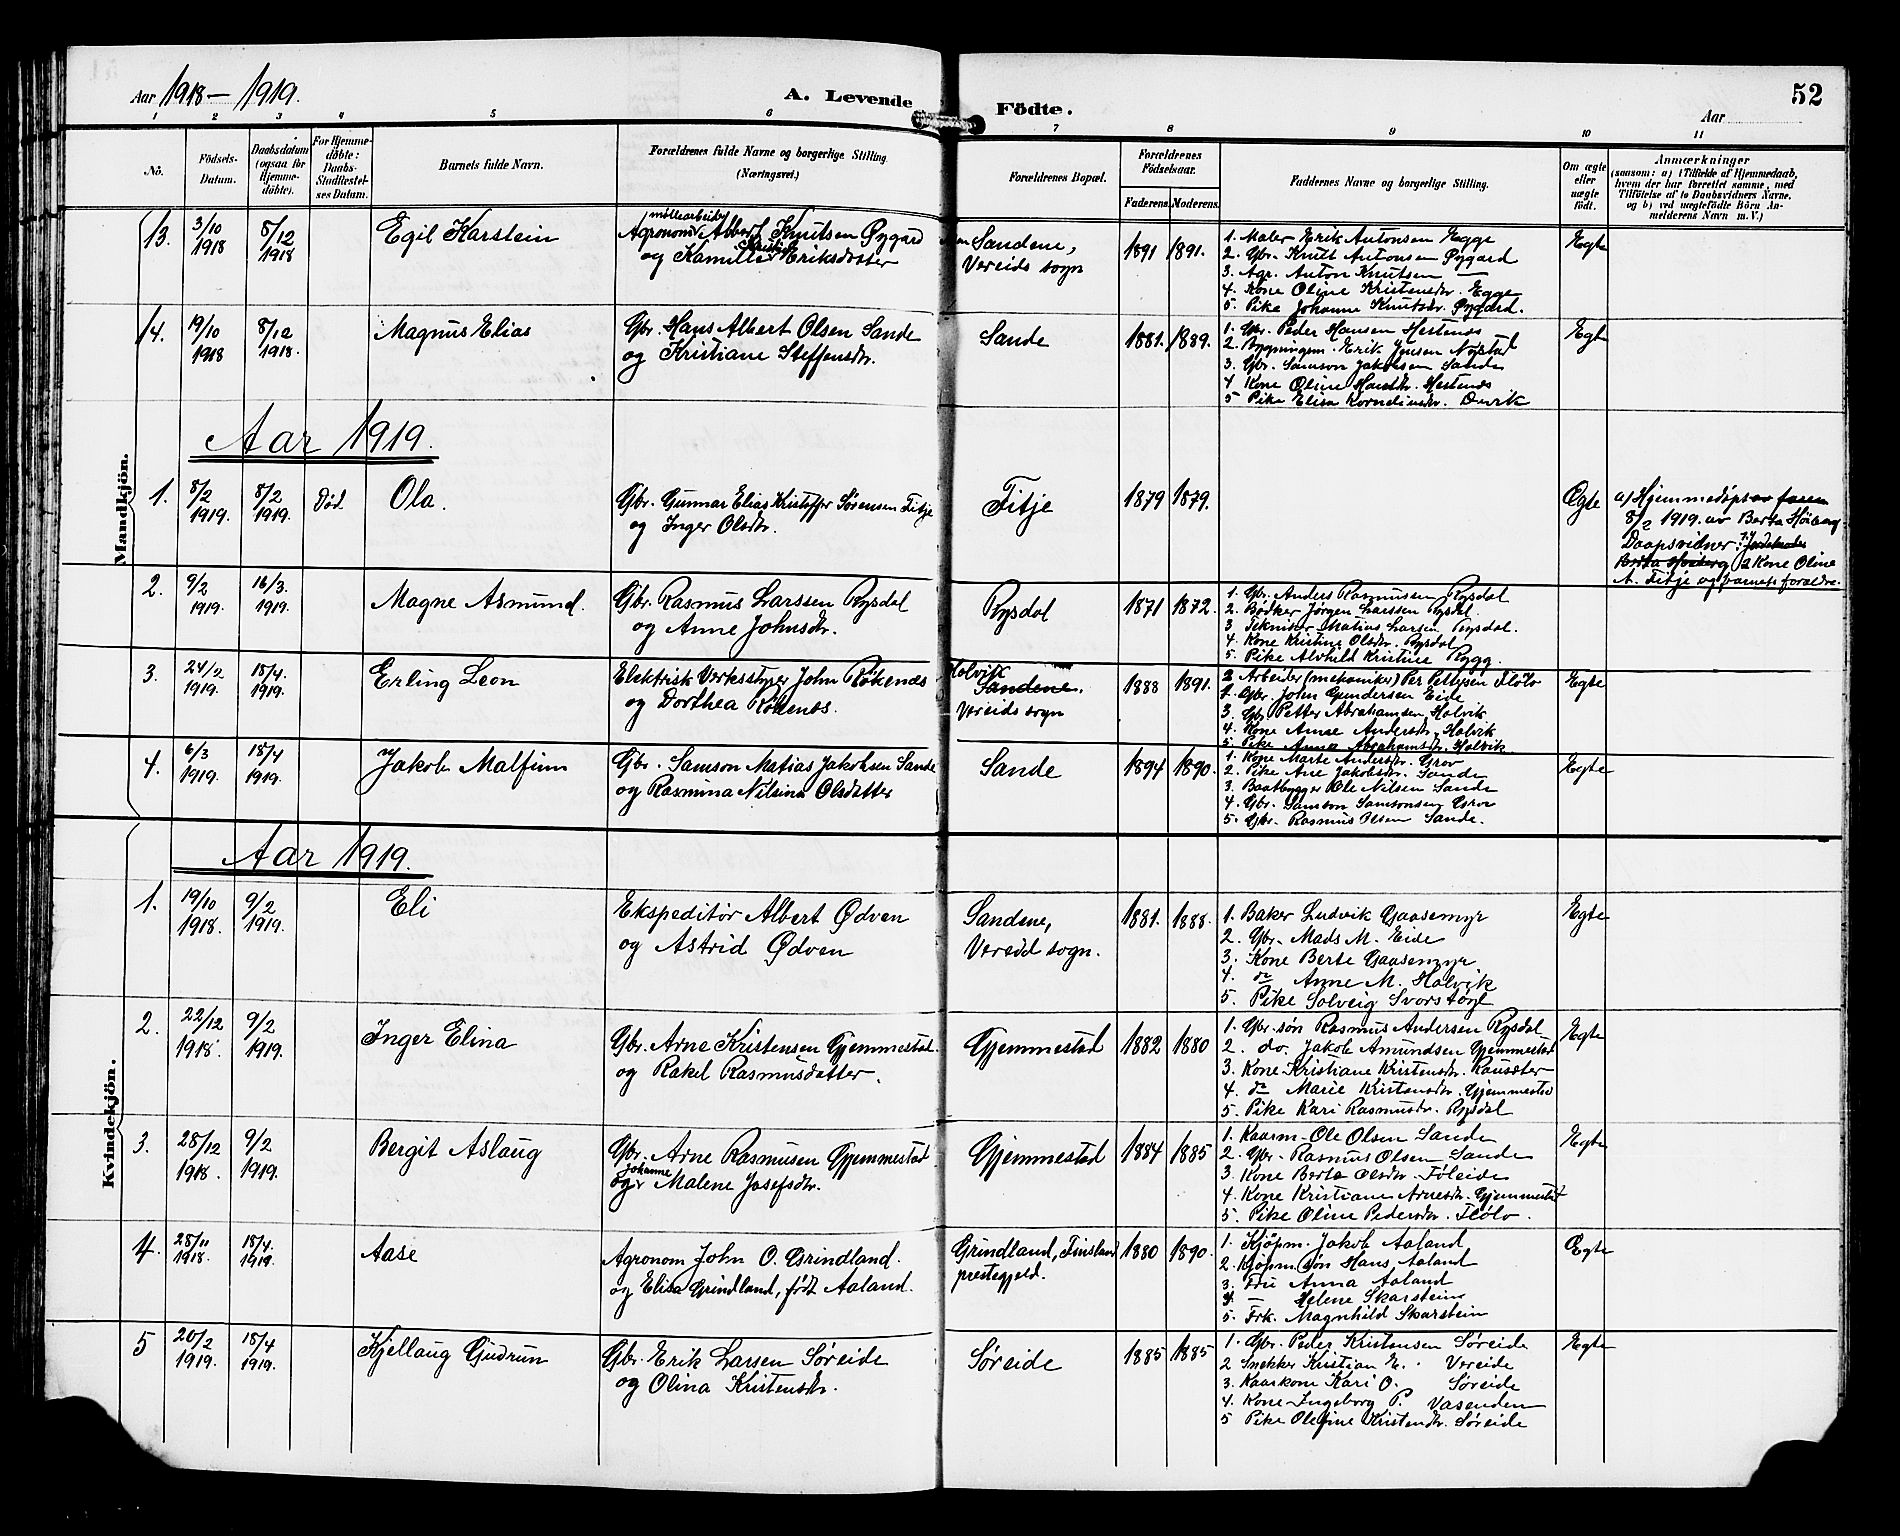 Aar 1918 - 1919.
A. Levende Födte.
Aar
52
1 2 3 4 5 6 7 8 9 10 11
No.
Födsels-Datum.
Daabsdatum (ogsaa for Hjemme-döbte).
For Hjemme-döbte: Daabs-Stadfæstel-ses Datum.
Barnets fulde Navn.
Forældrenes fulde Navne og borgerlige Stilling.
(Næringsvei.)
Forældrenes Bopæl.
Forældrenes Födselsaar.
Faderens.
Moderens.
Faddernes Navne og borgerlige Stilling.
Om ægte eller uægte födt.
Anmærkninger
(saasom: a) i Tilfælde af Hjemmedaab, hvem der har forrettet samme, med Tilföielse af to Daabsvidners Navne, og b) ved uægtefödte Börn An-melderens Navn m. V.)
Mandkjön.
13. 3/10 1918 8/12 1918 Egil Karstein
møllearbeider
Agronom Albert Knutsen Øygard
og Kamilla Kristine Eriksdatter
Sandene,
Vereids sogn
1891 1891.
1. Maler Erik Antonsen Egge
2. Gbr. Knut Antonsen Øygard
3. Agr. Anton Knutsen —
4. Kone Oline Kristensdr. Egge
5. Pike Johanne Knutsdr. Øygard.
Egte
14. 19/10 1918 8/12 1918. Magnus Elias
Gbr. Hans Albert Olsen Sande
og Kristiane Steffensdr.
Sande
1881. 1889.
1. Gbr. Peder Hansen Hestenes
2. Bygningsm. Erik Jensen Nystad
3. Gbr. Samson Jakobsen Sande
4 Kone Oline Hansdr. Hestenes
5 Pike Elisa Korneliusdr.
Egte
Aar 1919.
1. 8/2 1919. 8/2 1919. Död Ola.
Gbr. Gunnar Elias Kristoffer Sørensen Fitje
og Inger Olsdr.
Fitje
1879 1879.
Ægte
a) Hjemmedøpt
8/2 1919. av Berta Høiberg.
Daapsvidner: 1) Jordmoder
Berta Høiberg 2 Kone Oline
A. Fitje og barnets forældre.
2. 9/2 1919. 16/3. 1919. Magne Asmund.
Gbr. Rasmus Larssen Rysdal
og Anne Johnsdr.
Rysdal
1871 1872.
1. Gbr. Anders Rasmussen Rysdal
2. Bødker Jörgen Larssen Rysdal.
3 Tekniker Matias Larsen Rysdal.
4. Kone Kristine Olsdr. Rysdal
5. Pike Alvhild Kristine Rygg.
3. 24/2 1919. 18/4. 1919. Erling Leon
Elektrisk Verksstyrer John Røkenes
og Dorthea Røkenes.
Holvik
Sandene.
Vereids sogn
1888 1891.
2 Arbeider (mekaniker) Per Pettersen Flölo
1. Gbr. John Gundersen Eide
3. Gbr Petter Abrahamsen Holvik
4. Kone Anne Andersdr. Holvik
5. Pike Anna Abrahamsdr. Holvik.
Egte
4. 6/3 1919. 18/4 1919. Jakob Malfinn
Gbr. Samson Matias Jakobsen Sande
og Rasmina Nilsina Olsdatter
Sande
1894 1890.
1. Kone Marte Andersdr. Grov
2. Pike Ane Jakobsdr. Sande
3. Baatbygger Ole Nilsen Sande
4. Gbr. Samson Samsonsen Grov
5. Gbr. Rasmus Olsen Sande.
Egte
Kvindekjön.
Aar 1919.
1. 19/10 1918. 9/2 1919. Eli
Ekspeditør Albert Ødven
og Astrid Ødven
Sandene,
Vereid sogn.
1881. 1888.
1. Baker Ludvik Gaasemyr
2. Gbr. Mads M. Eide
3. Kone Berte Gaasemyr
4. do Anne M. Holvik
5. Pike Solveig Svorstøyl
Egte
2. 22/12 1918. 9/2 1919. Inger Elina
Gbr. Arne Kristensen Gjemmestad.
og Rakel Rasmusdatter.
Gjemmestad
1882 1880
1. Gbr. søn Rasmus Andersen Rysdal
2. do. Jakob Amundsen Gjemmestad
3. Kone Kristiane Kristensdr. Rausæter
4. do Marie Kristensdr. Gjemmestad
5. Pike Kari Rasmusdr. Rysdal
Egte
3. 28/12 1918. 9/2 1919. Bergit Aslaug
Gbr. Arne Rasmusen Gjemmestad
og Johanne Malene Josefsdr.
Gjemmestad
1884 1885
1. Kaarm. Ole Olsen Sande
2. Gbr. Rasmus Olsen Sande
3. Kone Berte Olsdr. Föleide
4. Kone Kristiane Arnesdr. Gjemmestad
5. Pike Oline Pedersdr. Flölo.
Egte
4. 28/11 1918. 18/4. 1919. Aase
Agronom John O. Grindland.
og Elisa Grindland, født Aaland.
Grindland, Finsland
prestegjeld.
1880 1890.
1. Kjöpm. Jakob Aaland
2. Kjöpm. søn Hans Aaland
3. Fru Anna Aaland
4. — Helene Skarstein
5. Frk. Magnhild Skarstein
Ægte
5 20/2 1919. 18/4 1919. Kjellaug Gudrun
Gbr. Erik Larsen Søreide
og Olina Kristensdr.
Søreide
1885 1885
1. Gbr. Peder Kristensen Søreide
2 Snekker Kristian E. Vereide
3. Kaarkone Kari O. Søreide
4. Kone Ingeborg P. Vasenden
5 Pike Olefine Kristensdr. Søreide
Egte